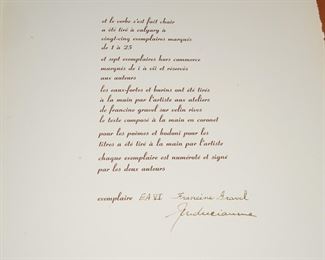 et le verbe s'est fait chair
a été tiré à calgary à
vingt-cinq exemplaires marqués
de 1 à 25
et sept exemplaires hors commerce
marqués de i à vii et réservés
aux auteurs
les eaux-fortes et burins ont été tirés
à la main par l'artiste aux ateliers
de francine gravel sur velin rives
le texte composé à la main en coronet
pour les poèmes et bodoni pour les
titres a été tiré à la main par l'artiste
chaque exemplaire est numéroté et signé
par les deux auteurs
exemplaire EA VI Francine Gravel